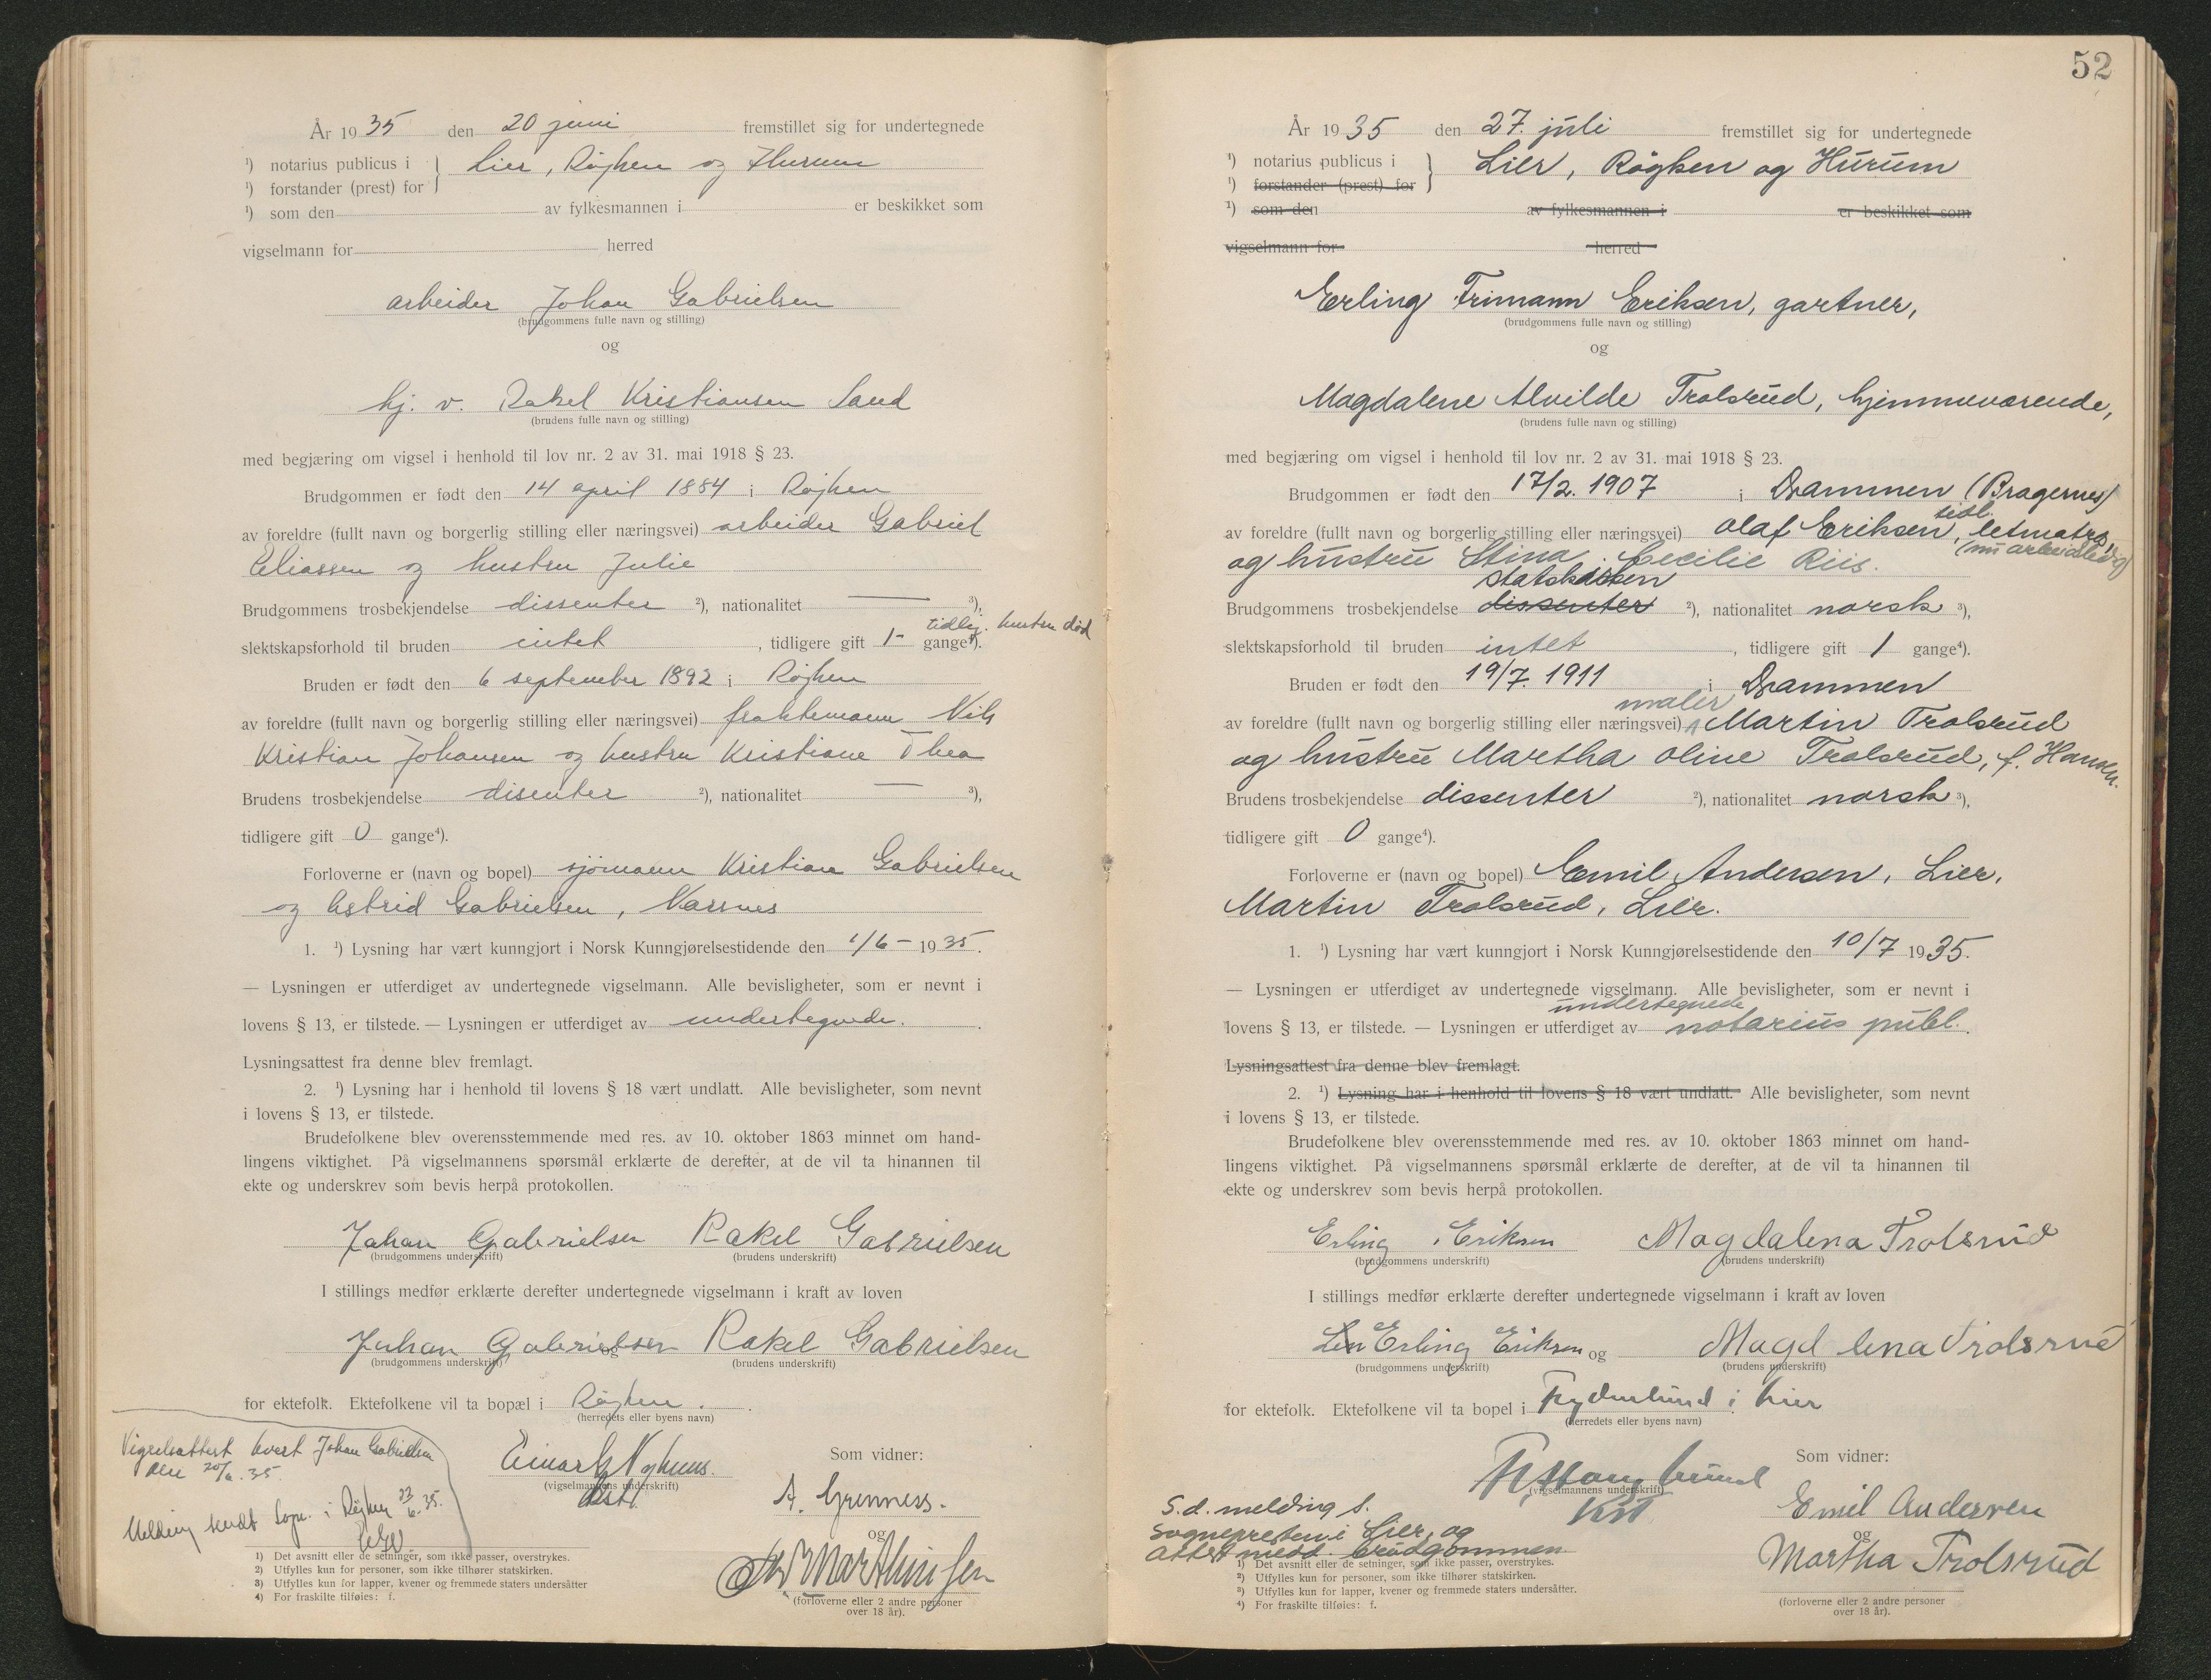 År 1935 den 20 juni fremstillet sig for undertegnede
¹) notarius publicus i } Lier, Røyken og Hurum
¹) forstander (prest) for
¹) som den av fylkesmannen i er beskikket som
vigselmann for herred
arbeider Johan Gabrielsen
(brudgommens fulle navn og stilling)
og
hj. v. Rakel Kristiansen Sand
(brudens fulle navn og stilling)
med begjæring om vigsel i henhold til lov nr. 2 av 31. mai 1918 § 23.
Brudgommen er født den 14 april 1884 i Røyken
av foreldre (fullt navn og borgerlig stilling eller næringsvei) arbeider Gabriel
Eliassen og hustru Julie
Brudgommens trosbekjendelse dissenter ²), nationalitet — ³),
tidlig. hustru død
slektskapsforhold til bruden intet, tidligere gift 1- gange⁴).
Bruden er født den 6 september 1892 i Røyken
av foreldre (fullt navn og borgerlig stilling eller næringsvei) fraktemann Nils
Kristian Johansen og hustru Kristiane Thea
Brudens trosbekjendelse disenter ²), nationalitet — ³),
tidligere gift 0 gange⁴).
Forloverne er (navn og bopel) sjömann Kristian Gabrielsen
og Astrid Gabrielsen, Nærsnes
1. ¹) Lysning har vært kunngjort i Norsk Kunngjørelsestidende den 1/6 - 1935.
— Lysningen er utferdiget av undertegnede vigselmann. Alle bevisligheter, som er nevnt i
lovens § 13, er tilstede. — Lysningen er utferdiget av undertegnede.
Lysningsattest fra denne blev fremlagt.
2. ¹) Lysning har i henhold til lovens § 18 vært undlatt. Alle bevisligheter, som nevnt
i lovens § 13, er tilstede.
Brudefolkene blev overensstemmende med res. av 10. oktober 1863 minnet om hand-
lingens viktighet. På vigselmannens spørsmål erklærte de derefter, at de vil ta hinannen til
ekte og underskrev som bevis herpå protokollen.
Johan Gabrielsen Rakel Gabrielsen
(brudgommens underskrift) (brudens underskrift)
I stillings medfør erklærte derefter undertegnede vigselmann i kraft av loven
Johan Gabrielsen og Rakel Gabrielsen
(brudgommens underskrift) (brudens underskrift)
for ektefolk. Ektefolkene vil ta bopæl i Røyken.
(herredets eller byens navn)
Vigselsattest levert Johan Gabrielsen
den 20/6.35.
Melding sendt Sogn. i Røyken 23/6.35.
Einar
(vigselmannens underskrift)
Som vidner:
A. Grenness.
og
Marthinsen
(forloverne eller 2 andre personer
over 18 år).
1) Det avsnitt eller de setninger, som ikke passer, overstrykes.
2) Utfylles kun for personer, som ikke tilhører statskirken.
3) Utfylles kun for lapper, kvener og fremmede staters undersåtter
4) For fraskilte tilføies: f.
52
År 1935 den 27. juli fremstillet sig for undertegnede
¹) notarius publicus i } Lier, Røyken og Hurum
¹) forstander (prest) for
¹) som den av fylkesmannen i er beskikket som
vigselmann for herred
Erling Frimann Eriksen, gartner,
(brudgommens fulle navn og stilling)
og
Magdalene Alvilde Trolsrud, hjemmeværende,
(brudens fulle navn og stilling)
med begjæring om vigsel i henhold til lov nr. 2 av 31. mai 1918 § 23.
Brudgommen er født den 17/2. 1907 i Drammen (Bragernes)
tidl.
av foreldre (fullt navn og borgerlig stilling eller næringsvei) Olaf Eriksen, letmatros,
(nu arbeidsledig)
og hustru Stina Cecilie Riis.
statskirken
Brudgommens trosbekjendelse dissenter ²), nationalitet norsk ³),
slektskapsforhold til bruden intet, tidligere gift 1 gange⁴).
Bruden er født den 19/7. 1911 i Drammen
maler
av foreldre (fullt navn og borgerlig stilling eller næringsvei) Martin Trolsrud
og hustru Martha Oline Trolsrud, f. Hansen.
Brudens trosbekjendelse dissenter ²), nationalitet norsk ³),
tidligere gift 0 gange⁴).
Forloverne er (navn og bopel) Emil Andersen, Lier,
Martin Trolsrud, Lier.
1. ¹) Lysning har vært kunngjort i Norsk Kunngjørelsestidende den 10/7 1935.
— Lysningen er utferdiget av undertegnede vigselmann. Alle bevisligheter, som er nevnt i
undertegnede
lovens § 13, er tilstede. — Lysningen er utferdiget av notarius publ.
Lysningsattest fra denne blev fremlagt.
2. ¹) Lysning har i henhold til lovens § 18 vært undlatt. Alle bevisligheter, som nevnt
i lovens § 13, er tilstede.
Brudefolkene blev overensstemmende med res. av 10. oktober 1863 minnet om hand-
lingens viktighet. På vigselmannens spørsmål erklærte de derefter, at de vil ta hinannen til
ekte og underskrev som bevis herpå protokollen.
Erling Eriksen Magdalena Trolsrud
(brudgommens underskrift) (brudens underskrift)
I stillings medfør erklærte derefter undertegnede vigselmann i kraft av loven
Erling Eriksen og Magdalena Trolsrud
(brudgommens underskrift) (brudens underskrift)
for ektefolk. Ektefolkene vil ta bopel i Frydenlund i Lier
(herredets eller byens navn)
(vigselmannens underskrift)
Som vidner:
Emil Andersen
og
Martha Trolsrud
(forloverne eller 2 andre personer
over 18 år).
S.d. melding s.
Sognepresten i Lier, og
attest medd. brudgommen
1) Det avsnitt eller de setninger, som ikke passer, overstrykes.
2) Utfylles kun for personer, som ikke tilhører statskirken.
3) Utfylles kun for lapper, kvener og fremmede staters undersåtter.
4) For fraskilte tilføies: f.